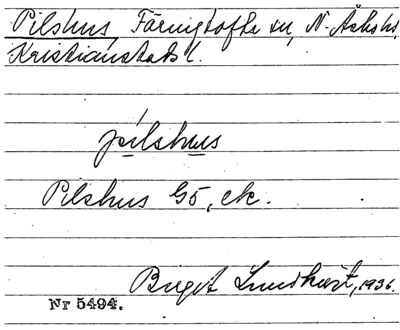 Pilshus, Färingtofta sn, N. Åsbo hd,
Kristianstads l.
pilshus
Pilshus G5, ek.
Birgit Lundkvist, 1936.
Nr 5494.